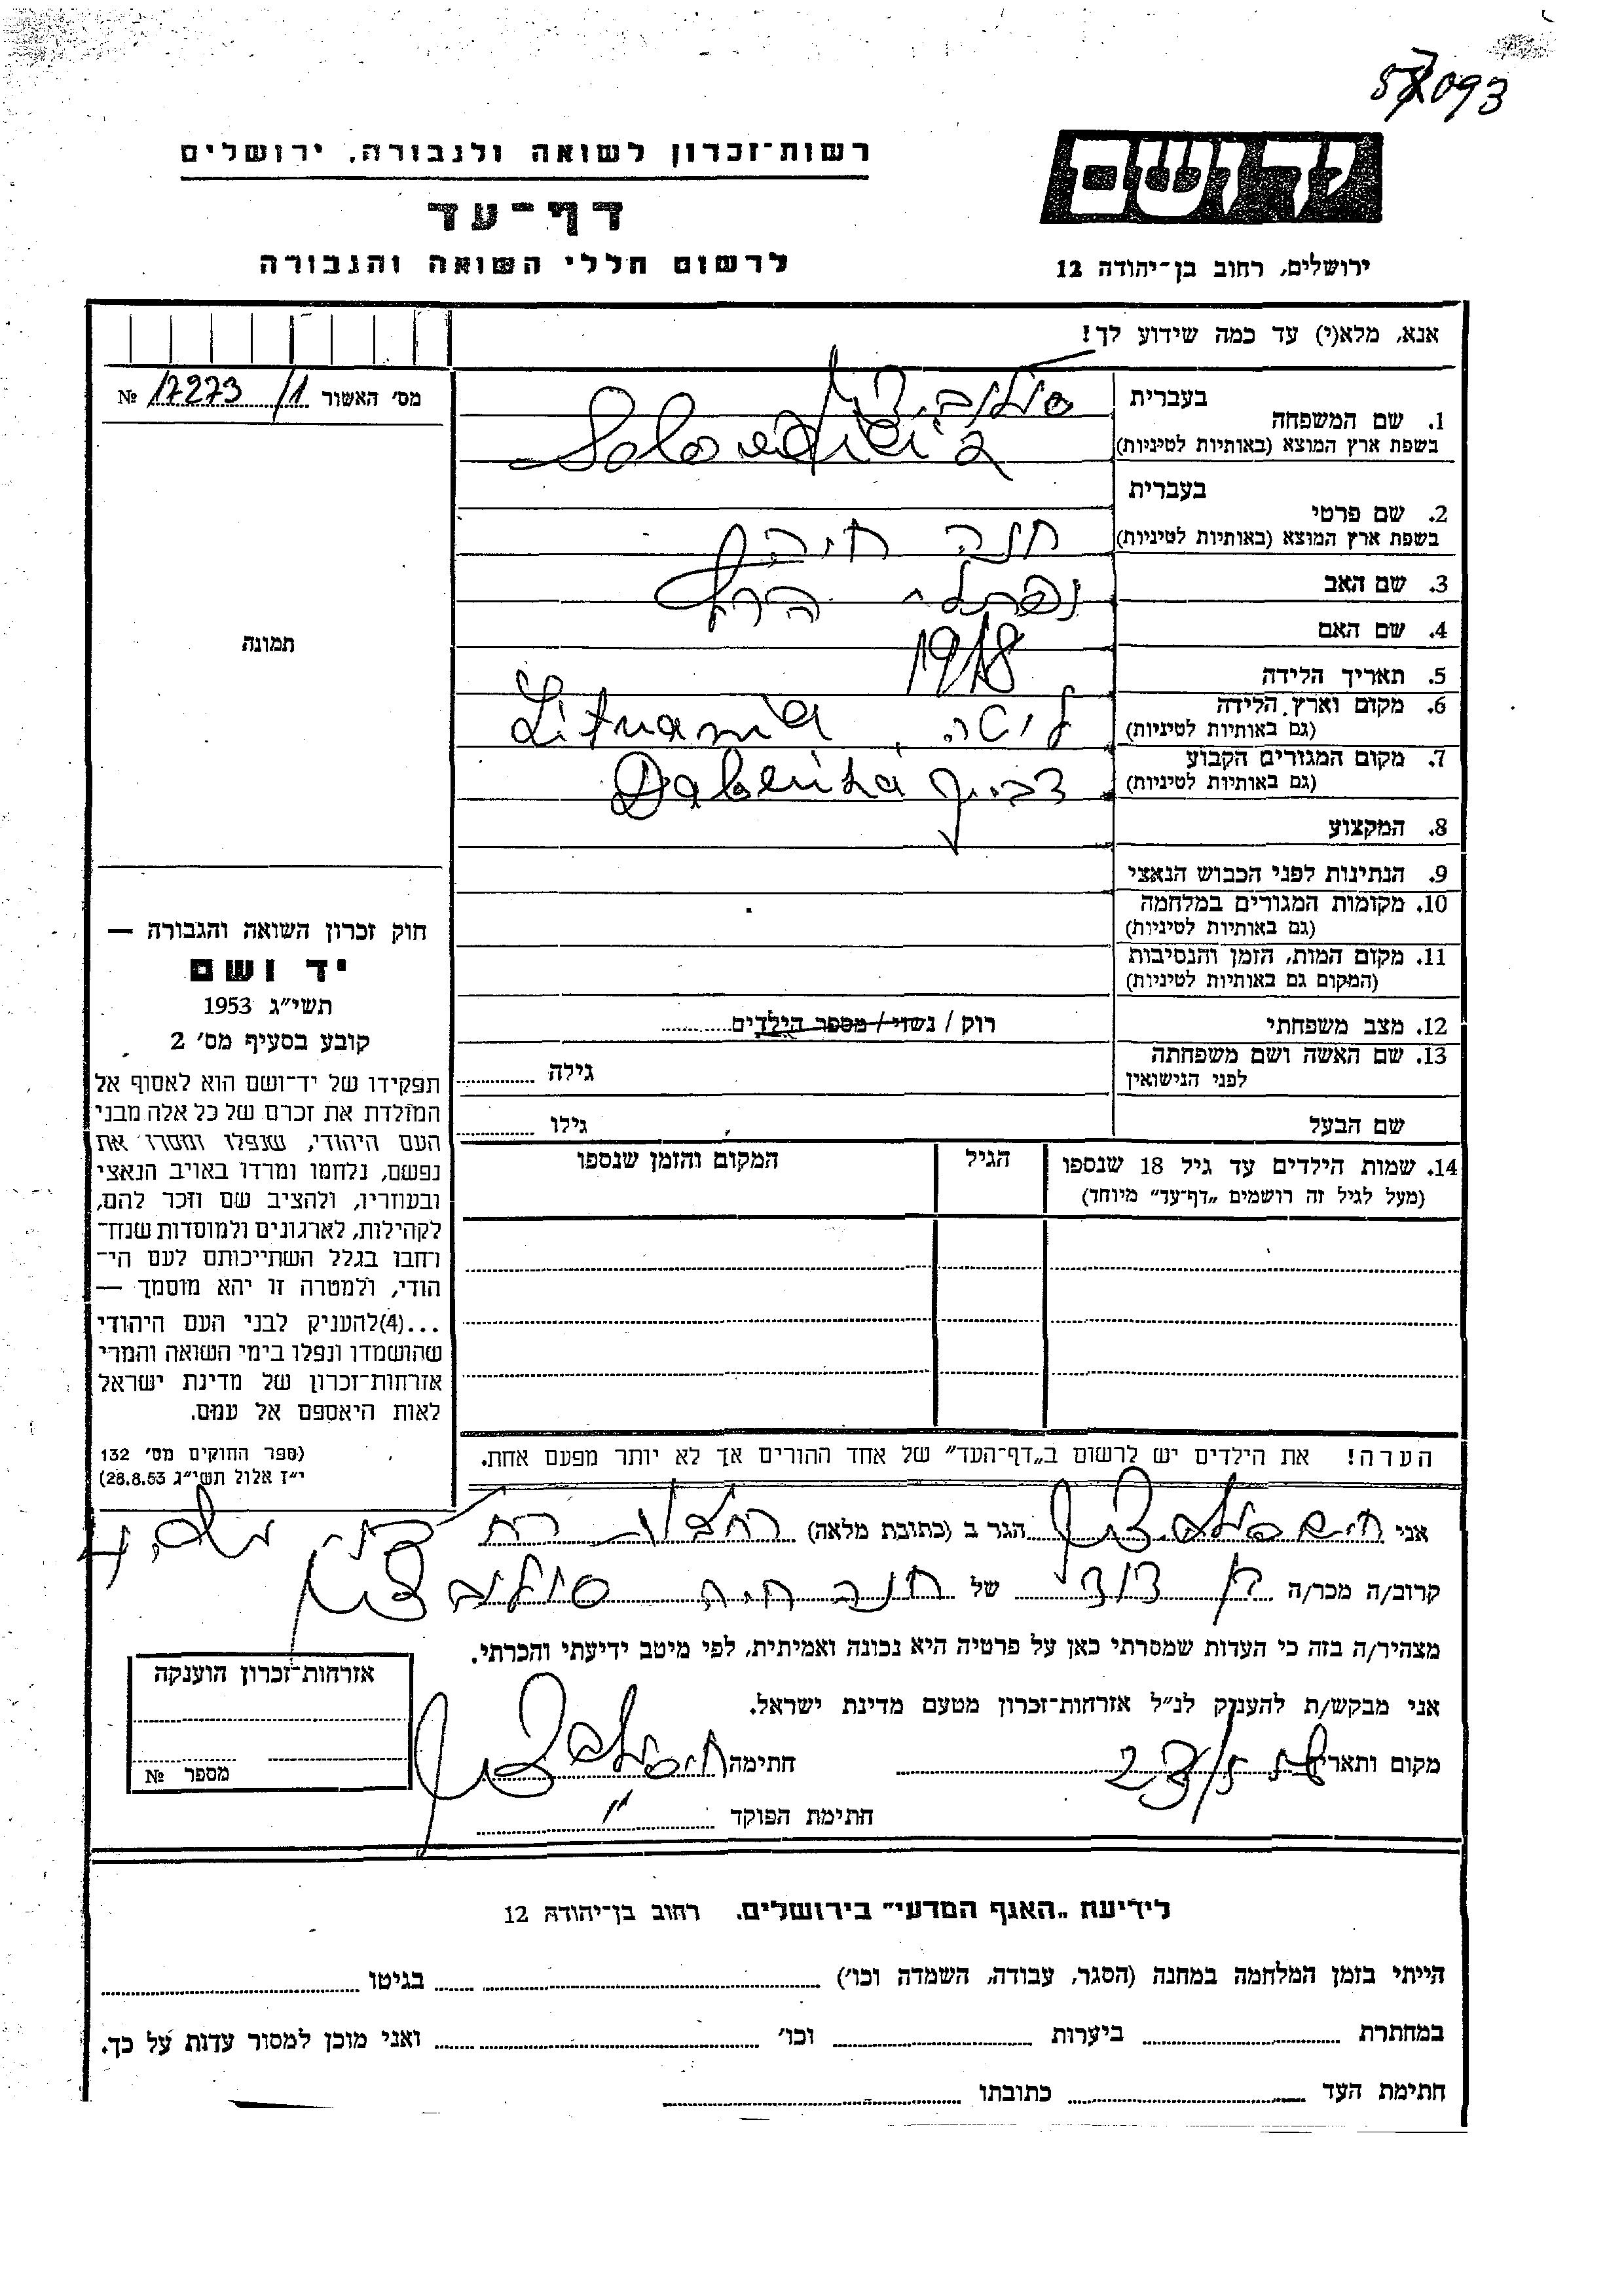 57093
רשות־זכרון לשואה ולגבורה, ירושלים
יד ושם
דף־עד
לרשום חללי השואה והגבורה
ירושלים, רחוב בן־יהודה 12
אנא, מלא(י) עד כמה שידוע לך!
מס׳ האשור 17273/1 №
1. שם המשפחה
בעברית
בשפת ארץ המוצא (באותיות לטיניות)
2. שם פרטי
בעברית
בשפת ארץ המוצא (באותיות לטיניות) חנה חיה
3. שם האב נפתלי הרץ
4. שם האם
5. תאריך הלידה 1918
6. מקום וארץ הלידה
(גם באותיות לטיניות) ליטה, Lituania
7. מקום המגורים הקבוע
(גם באותיות לטיניות)
8. המקצוע
9. הנתינות לפני הכבוש הנאצי
10. מקומות המגורים במלחמה
(גם באותיות לטיניות)
11. מקום המות, הזמן והנסיבות
(המקום גם באותיות לטיניות)
12. מצב משפחתי רוק / נשוי / מספר הילדים
13. שם האשה ושם משפחתה
לפני הנישואין גילה
שם הבעל גילו
תמונה
חוק זכרון השואה והגבורה —
יד ושם
תשי״ג 1953
קובע בסעיף מס׳ 2
תפקידו של יד־ושם הוא לאסוף אל
המולדת את זכרם של כל אלה מבני
העם היהודי, שנפלו ומסרו את
נפשם, נלחמו ומרדו באויב הנאצי
ובעוזריו, ולהציב שם וזכר להם,
לקהילות, לארגונים ולמוסדות שנח־
רחבו בגלל השתייכותם לעם הי־
הודי, ולמטרה זו יהא מוסמך —
...(4)להעניק לבני העם היהודי
שהושמדו ונפלו בימי השואה והמרי
אזרחות־זכרון של מדינת ישראל
לאות היאספם אל עמם.
(ספר החוקים מס׳ 132
י״ז אלול תשי״ג 28.8.53)
14. שמות הילדים עד גיל 18 שנספו
(מעל לגיל זה רושמים „דף־עד״ מיוחד)
הגיל
המקום והזמן שנספו
הערה! את הילדים יש לרשום ב„דף־העד״ של אחד ההורים אך לא יותר מפעם אחת.
אני הגר ב (כתובת מלאה)
קרוב/ה מכר/ה בן דוד של חנה חיה
מצהיר/ה בזה כי העדות שמסרתי כאן על פרטיה היא נכונה ואמיתית, לפי מיטב ידיעתי והכרתי.
אני מבקש/ת להעניק לנ״ל אזרחות־זכרון מטעם מדינת ישראל.
מקום ותאריך חתימה
חתימת הפוקד
אזרחות־זכרון הוענקה
מספר №
לידיעת „האגף המדעי״ בירושלים, רחוב בן־יהודה 12
הייתי בזמן המלחמה במחנה (הסגר, עבודה, השמדה וכו׳) בגיטו
במחתרת ביערות וכו׳ ואני מוכן למסור עדות על כך.
חתימת העד כתובתו